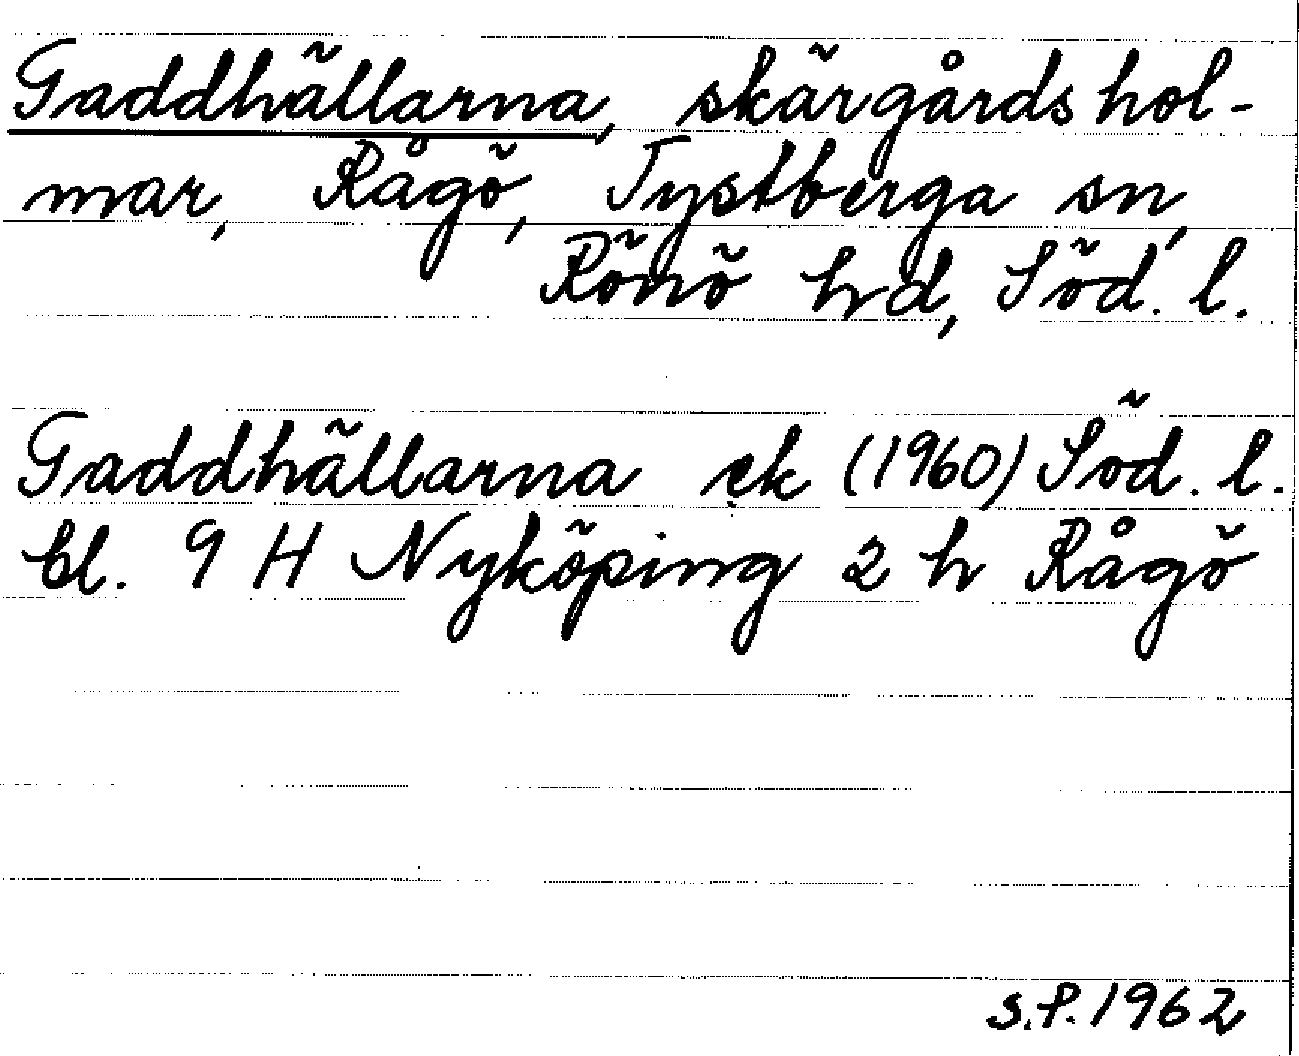 Gaddhällarna, skärgårdshol-
mar, Rågö, Tystberga sn,
Rönö hd, Söd. l.
Gaddhällarna ek (1960) Söd. l.
bl. 9 H Nyköping 2 h Rågö
S.P. 1962